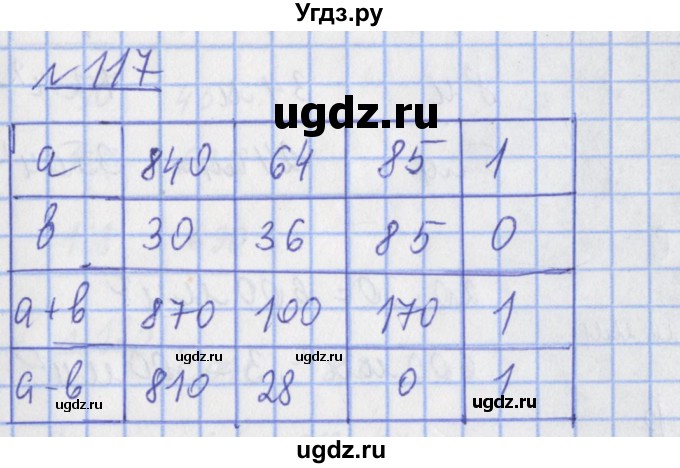 Угдз.ру
№117
ugdz.ru
a 840 64 85 1
в 30 36 85 0
a+в 870 100 170 1
ugdz.ru ugdz.ru
a-в 810 28 0 1
ugdz.ru ugdz.ru
ugdz.ru